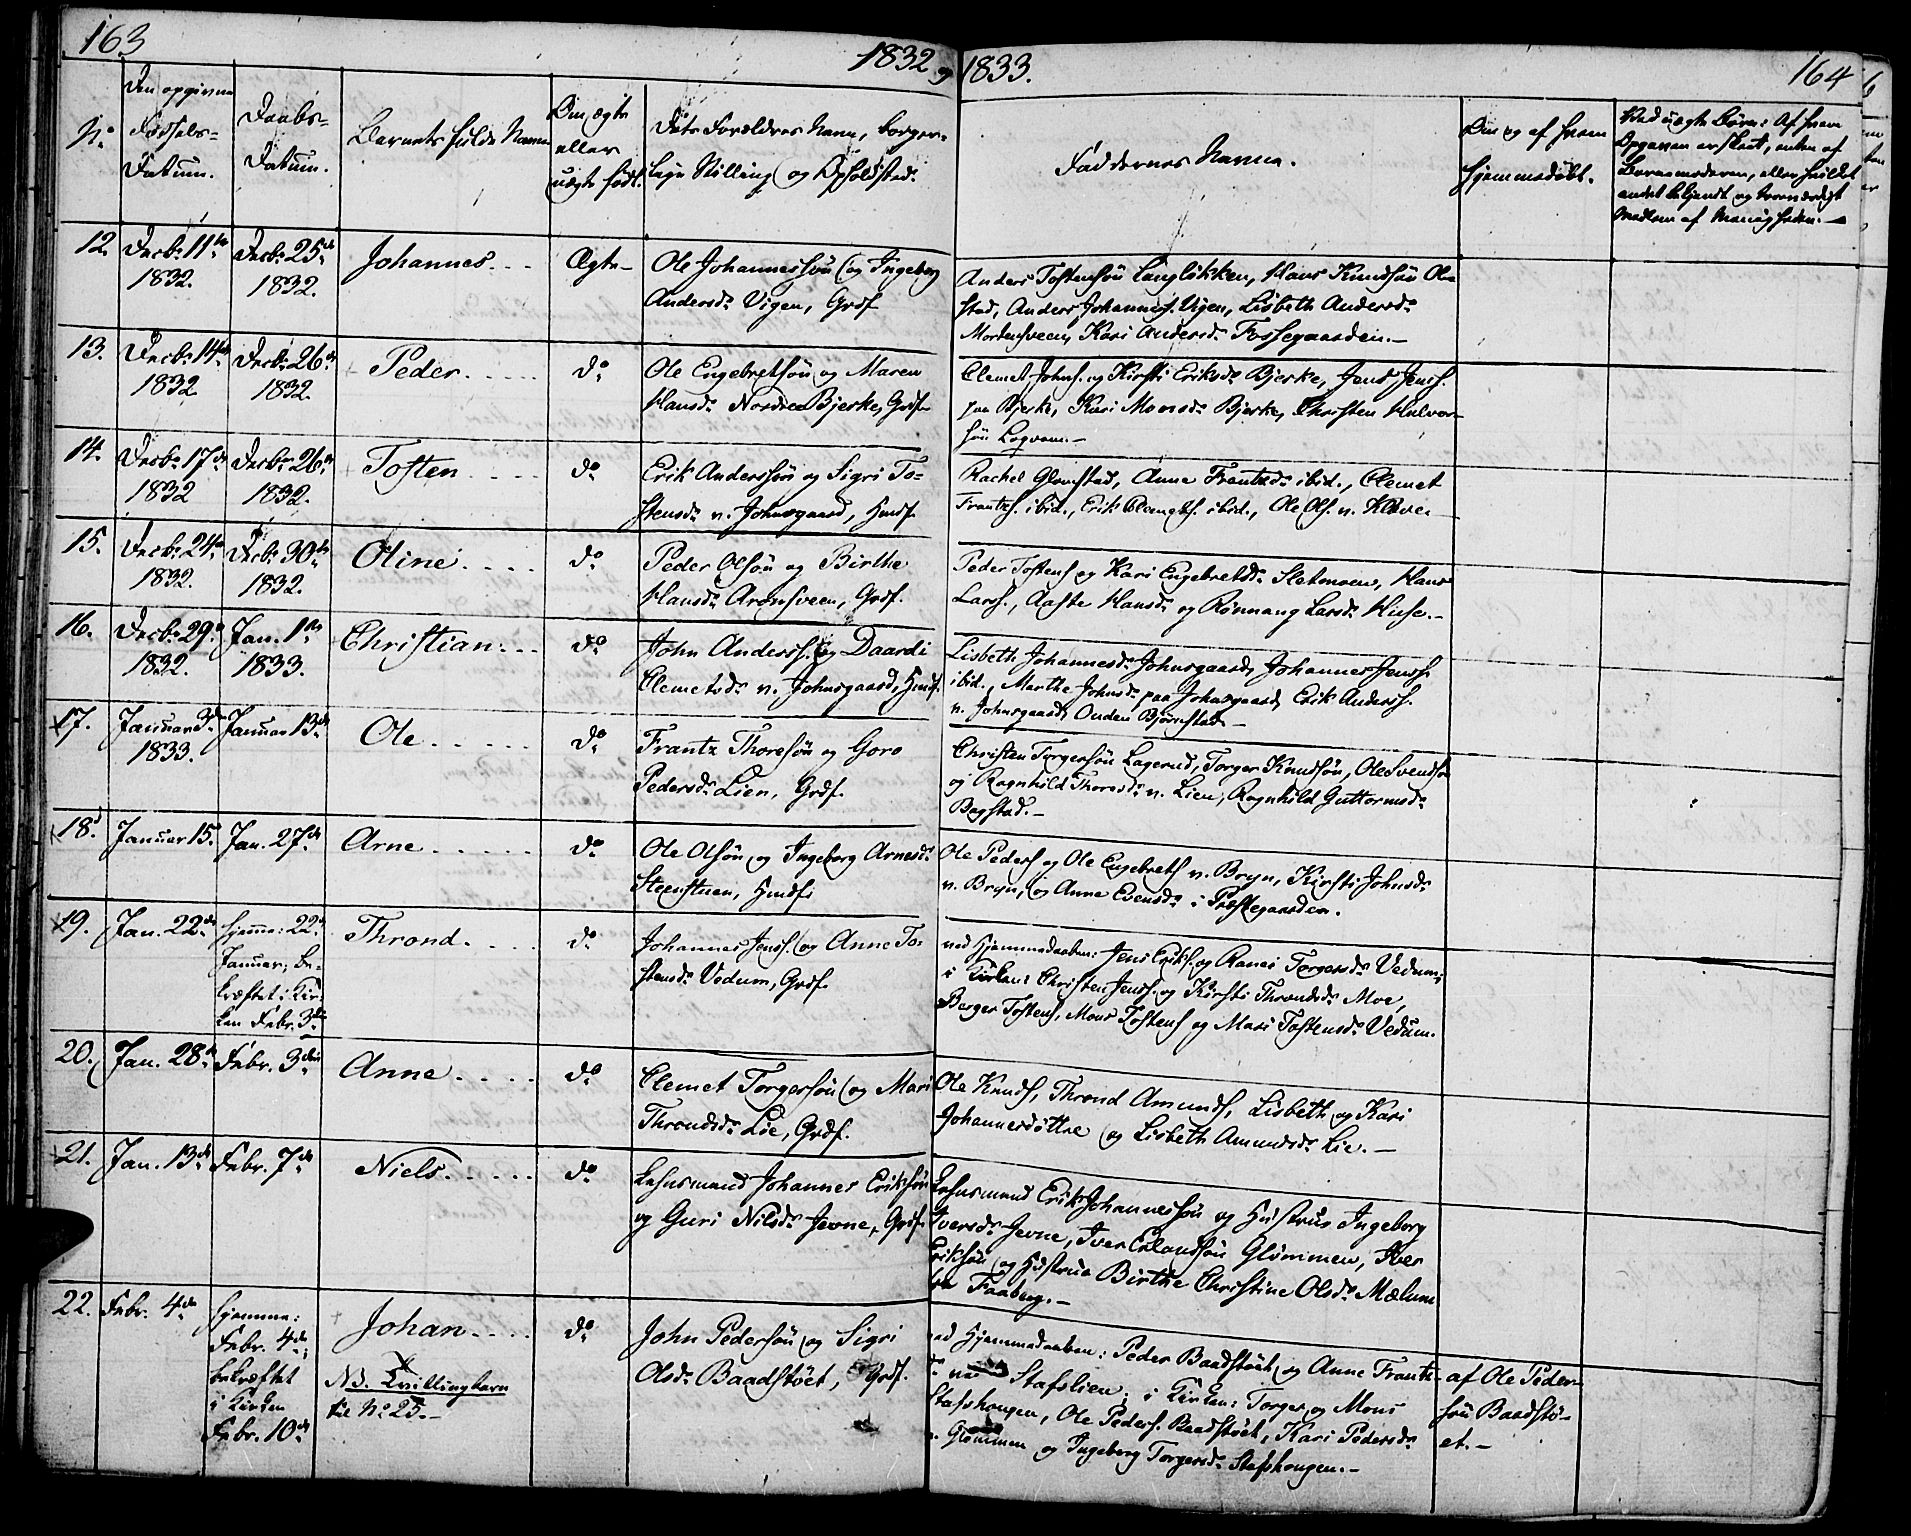 163
1832 og 1833.
164
No
Den opgivne Fødsels-Datum.
Daabs-Datum.
Barnets fulde Navn
Om ægte eller uægte født.
Dets Forældres Navn, borgerlige Stilling og Opholdsted.
Faddernes Navne.
Om og af hvem hjemmedøbt.
Ved uægte Børn: Af hvem Opgaven er skeet, enten af Barnemoderen, eller hvilket andet bekjendt og troværdigt Medlem af Menigheden.
12. Decbr 11te 1832. Decbr 25de 1832. Johannes... Ægte
Ole Johannessøn og Ingeborg
Andersdr Vigen, Grdf
Anders Tostensøn Langløkken, Hans Knudsøn Ole-
stad, Anders Johanness. Vigen, Lisbeth Andersdr
Mortensveen, Kari Andersdr Fossegaarden.—
13. Decbr 14de 1832 Decbr 26de 1832. Peder..... do
Ole Engebretsøn og Maren
Hansdr Nordre Bjerke, Grdf
Clemet Johns. og Kirsti Eriksdr Bjerke, Jens Jens.
paa Bjerke, Kari Monsdr Bjerke, Christen Halvor-
søn Logveen.—
14. Decbr 17de 1832 Decbr 26de 1832. Tosten.... do
Erik Anderssøn og Sigri To-
stensdr n. Johnsgaard, Hmdf.
Rachel Glomstad, Anne Frantzdr ibid., Clemet
Frantzs. ibid., Erik Clemets. ibid., Ole Ols. n. Kløve.
15. Decbr 24de 1832. Decbr 30te 1832. Oline.... do
Peder Olsøn og Birthe
Hansdr Aronsveen, Grdf.
Peder Tostens og Kari Engebretsdr Sletmoen, Hans
Lars., Aaste Hansdr og Rønnaug Larsdr Huse.—
16. Decbr 29de 1832. Jan. 1te 1833. Christian... do
John Anderss. og Daardi
Clemetsdr n. Johnsgaard, Hmdf.
Lisbeth Johannesdr Johnsgaard, Johannes Jenss.
ibid., Marthe Johnsdr paa Johnsgaard, Erik Anderss.
n. Johnsgaard, Ouden Bjørnstad.—
17. Januar 3die 1833. Januar 13de Ole..... do
Frantz Thoresøn og Goro
Pedersdr Lien, Grdf.
Christen Torgersøn Lagerud, Torger Knudsøn, Ole Svends.
og Ragnhild Thoresdr n. Lien, Ragnhild Guttormsdr
Bagstad.—
18. Januar 15. Jan. 27de Arne..... do
Ole Olsøn og Ingeborg Arnesdr
Steenstuen, Hmdf.
Ole Peders og Ole Engebrets n. Bryn, Kirsti Johnsdr
n. Bryn, og Anne Evensdr i Præstegaarden.
19. Jan. 22de Hjemme: 22de
Januar; be-
kræftet i Kir-
ken Febr. 3die
Thrond.... do
Johannes Jenss. og Anne To-
stensdr Vedum, Grdf.
ved Hjemmedaaben: Jens Eriks. og Ranei Torgersdr Vedum;
i Kirken: Christen Jenss. og Kirsti Throndsdr Moe,
Berger Tostens, Mons Tostens og Mari Tostensdr Vedum.
20. Jan. 28de Febr. 3die Anne.... do
Clemet Torgersøn og Mari
Throndsdr Lie, Grdf.
Ole Knuds, Thrond Amunds, Lisbeth og Kari
Johannesdøttre og Lisbeth Amundsdr Lie.—
21. Jan. 13de Febr. 7de Niels..... do
Lehnsmand Johannes Eriksøn
og Guri Nilsdr Jevne, Grdf.
Lehnsmand Erik Johannessøn og Hustrue Ingeborg
Iversdr Jevne, Iver Erlandsøn Glømmen, Iver
Eriksøn og Hustrue Birthe Christine Olsdr Mælum
fra Faaberg.—
22. Febr. 4de Hjemme:
Febr. 4de;
bekræftet
i Kirken
Febr. 10de
Johan.... do
NB. Tvillingbarn
til No 25.—
John Pedersøn og Sigri
Olsdr Baadstøet, Grdf.
ved Hjemmedaaben: Peder Baadstøet og Anne Frantz-
dr Stafslien; i Kirken: Torger og Mons
Stafshougen, Ole Peders. Baadstøet, Kari Pedersdr
n. Glømmen og Ingeborg Torgersdr Stafshougen.—
af Ole Peder-
søn Baadstø-
et.—